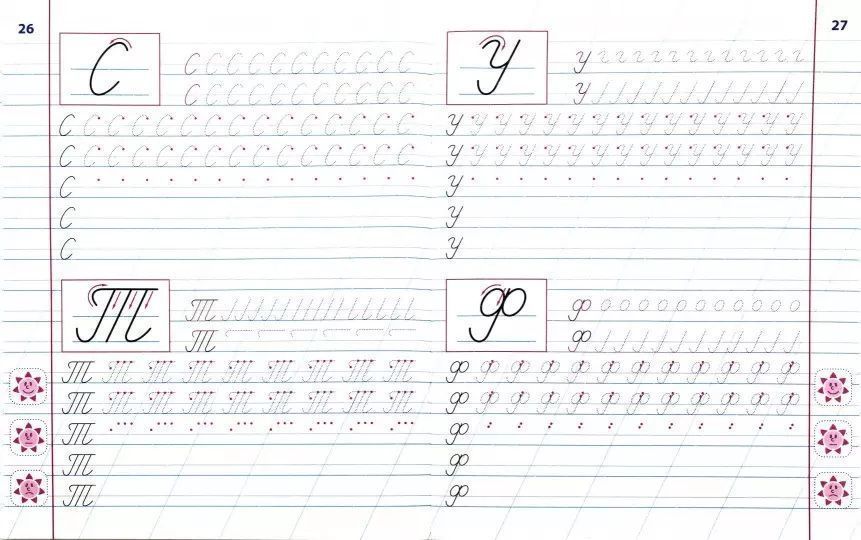 26
С
С С С С С С С С С С С
С С С С С С С С С С С
С С С С С С С С С С С С С С С
С С С С С С С С С С С С С С С
С
С
С
Т
Т
Т
Т Т Т Т Т Т Т Т Т
Т Т Т Т Т Т Т Т Т
Т
Т
Т
27
У
У
У
У У У У У У У У У У У У У У У
У У У У У У У У У У У У У У У
У
У
У
Ф
Ф
Ф
Ф Ф Ф Ф Ф Ф Ф Ф Ф Ф Ф Ф
Ф Ф Ф Ф Ф Ф Ф Ф Ф Ф Ф Ф
Ф
Ф
Ф